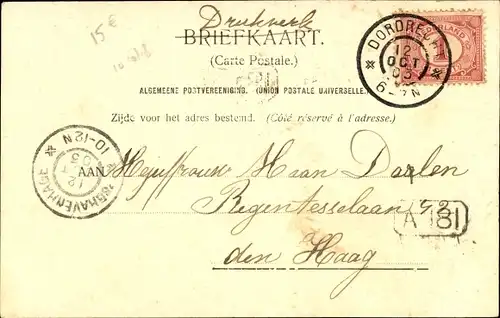 Drukwerk
15 €
BRIEFKAART.
(Carte Postale.)
ALGEMEENE POSTVEREENIGING. (UNION POSTALE UNIVERSELLE.)
Zijde voor het adres bestemd. (Côté réservé à l'adresse.)
DORDRECHT
12
OCT
03
6-7N
'SGRAVENHAGE
10-12N
12
03
AAN
Mejuffrouw Haan Darlen
Regentesselaan 92
den Haag
A 181